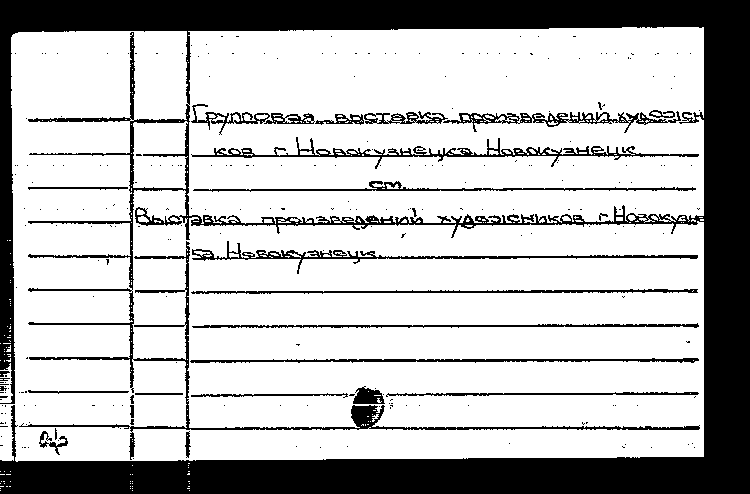 Групповая выставка произведений художн
ков г. Новокузнецка. Новокузнецк.
см.
Выставка произведений художников г. Новокузне
ка. Новокузнецк.